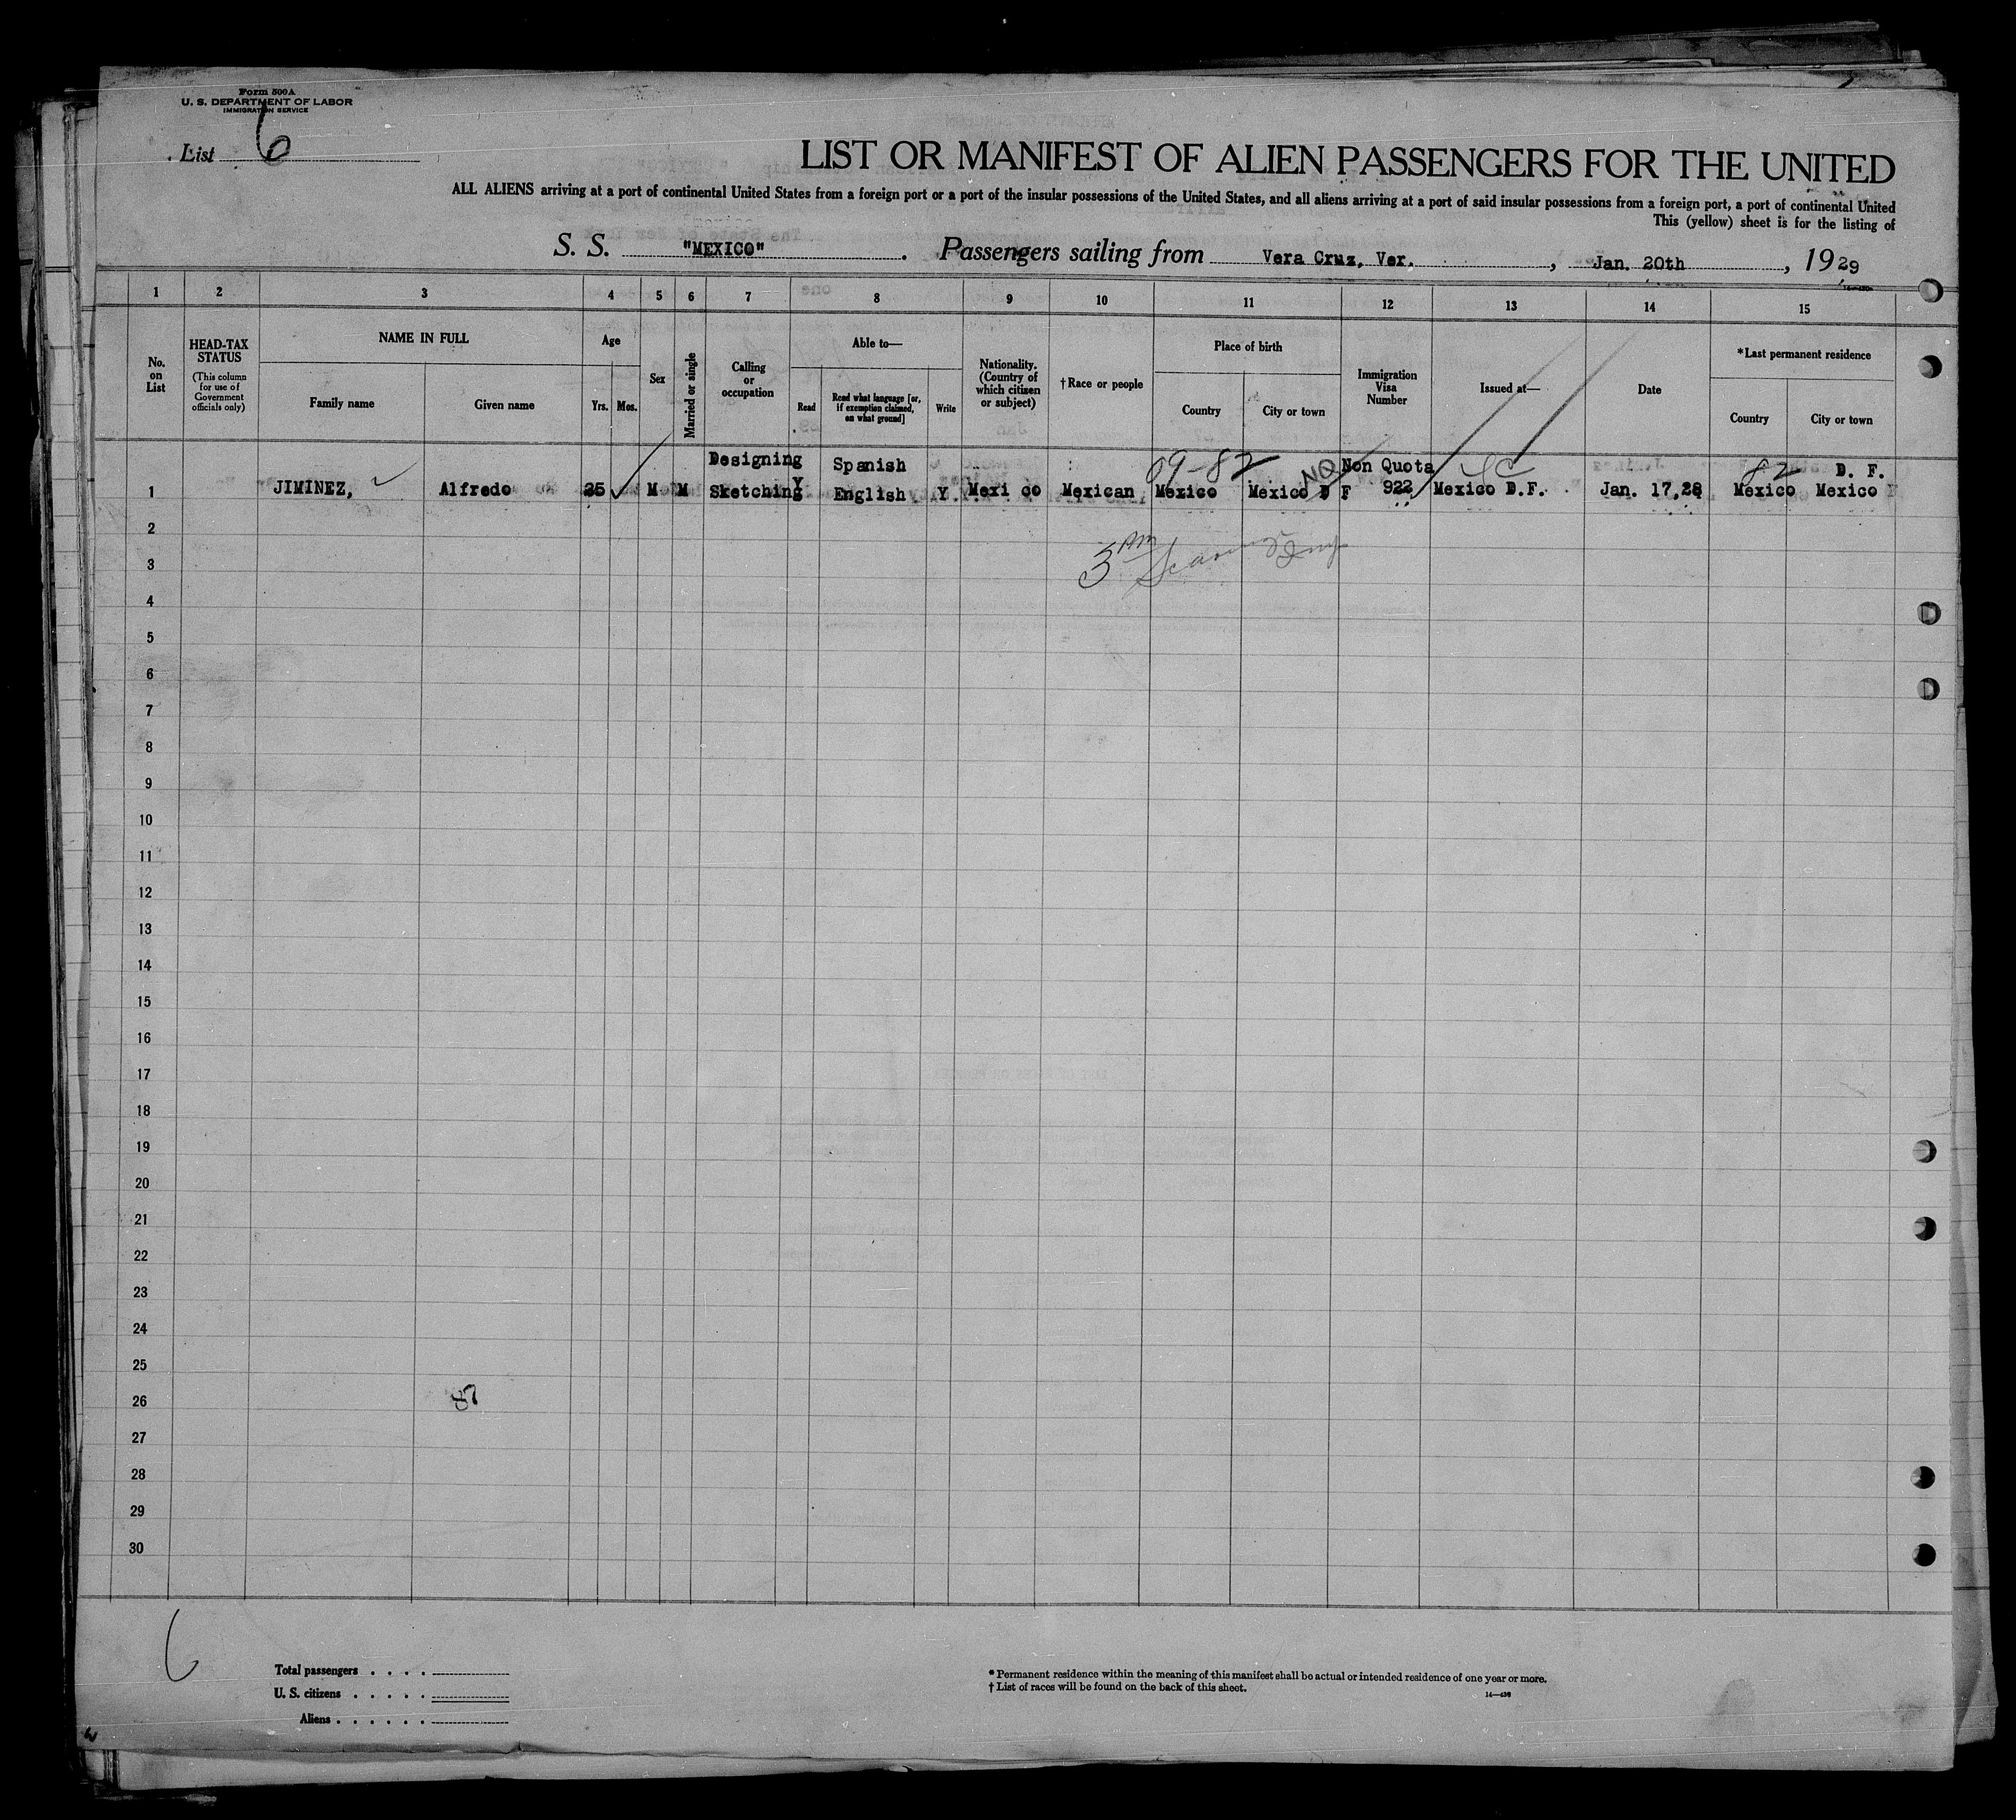 Form 500A
U. S. DEPARTMENT OF LABOR
IMMIGRATION SERVICE
List 6
LIST OR MANIFEST OF ALIEN PASSENGERS FOR THE UNITED
ALL ALIENS arriving at a port of continental United States from a foreign port or a port of the insular possessions of the United States, and all aliens arriving at a port of said insular possessions from a foreign port, a port of continental United
This (yellow) sheet is for the listing of
S. S. "MEXICO". Passengers sailing from Vera Cruz, Ver., Jan. 20th, 1929
1 2 3 4 5 6 7 8 9 10 11 12 13 14 15
No. on List
HEAD-TAX STATUS
(This column for use of Government officials only)
NAME IN FULL
Family name
Given name
Age
Yrs. Mos.
Sex
Married or single
Calling or occupation
Able to—
Read
Read what language [or, if exemption claimed, on what ground]
Write
Nationality. (Country of which citizen or subject)
†Race or people
Place of birth
Country
City or town
Immigration Visa Number
Issued at—
Date
*Last permanent residence
Country
City or town
Designing Spanish 09-82 NQ Non Quota 82 D. F.
1 JIMINEZ, Alfredo 25 M M Sketching Y English Y Mexi co Mexican Mexico Mexico D F 922 Mexico D.F. Jan. 17,28 Mexico Mexico
2
3 3 AM
4
5
6
7
8
9
10
11
12
13
14
15
16
17
18
19
20
21
22
23
24
25
26 87
27
28
29
30
6
Total passengers . . . .
U. S. citizens . . . . .
Aliens . . . . . .
* Permanent residence within the meaning of this manifest shall be actual or intended residence of one year or more.
† List of races will be found on the back of this sheet.